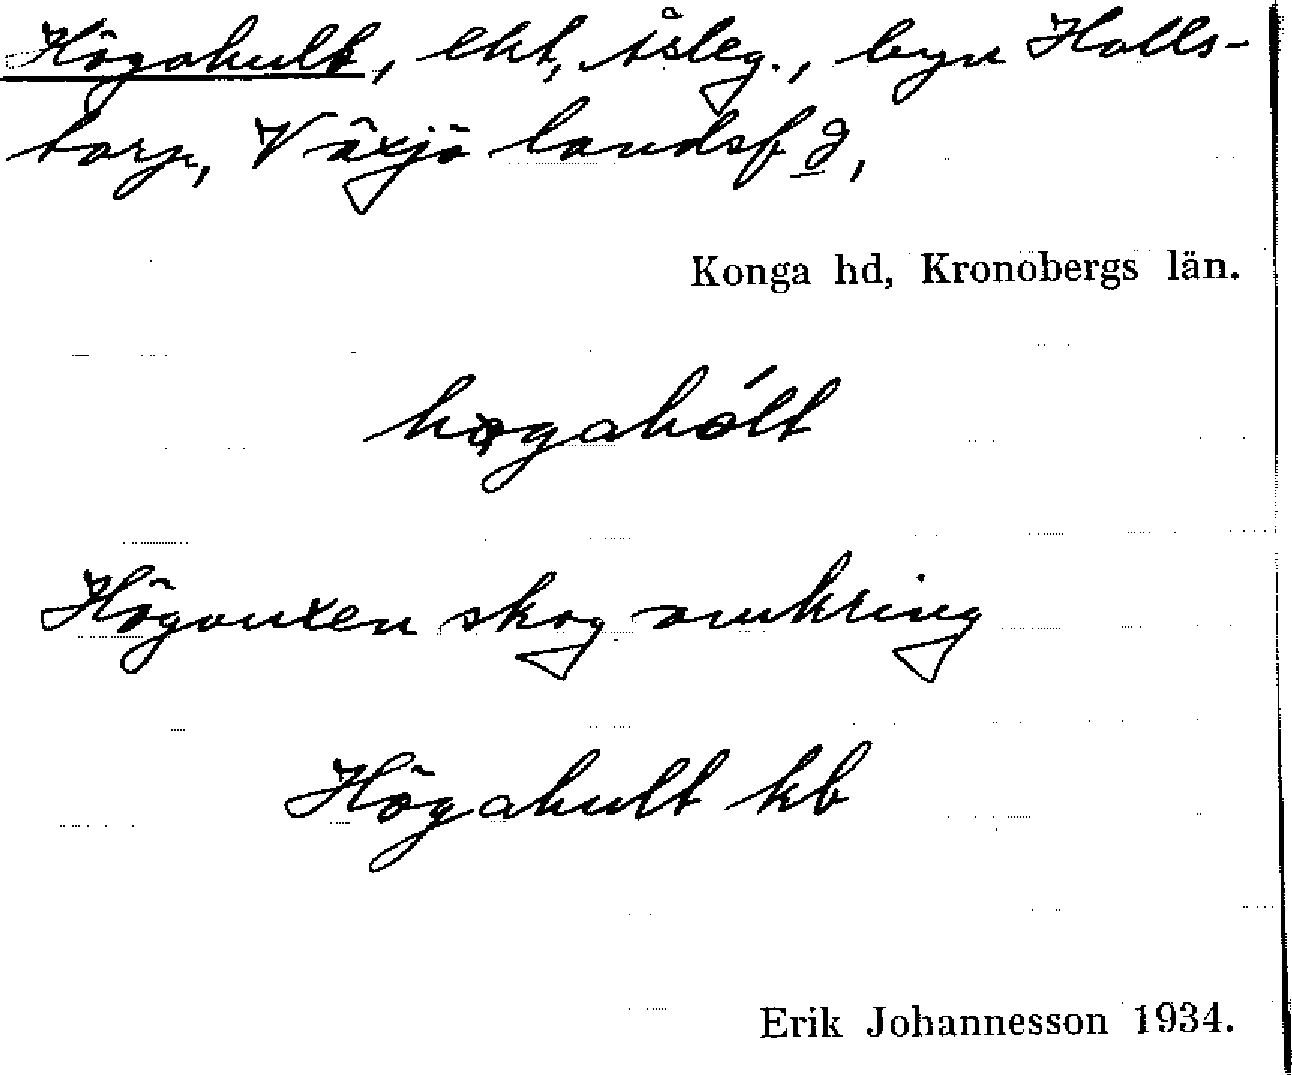 Högahult, ekt, åsleg., byn Halls-
torp, Växjö landsf d,
Konga hd, Kronobergs län.
høgahólt
skog omkring
Högahult kb
Erik Johannesson 1934.